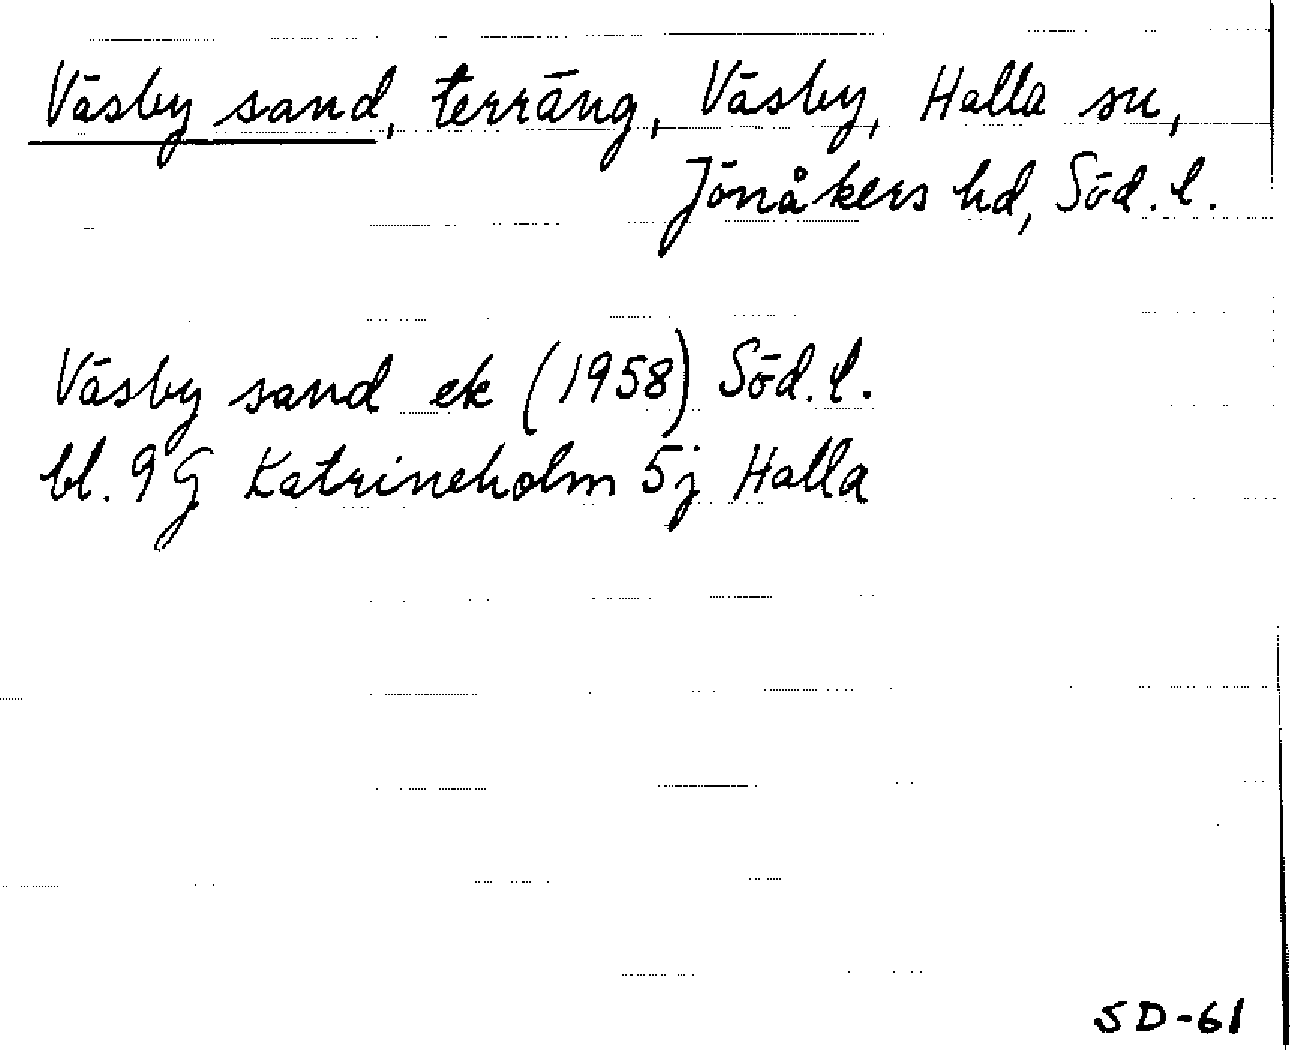 Väsby sand, terräng, Väsby, Halla sn,
Jönåkers hd, Söd. l.
Väsby sand ek (1958) Söd. l.
bl. 9 G Katrineholm 5j Halla
SD-61